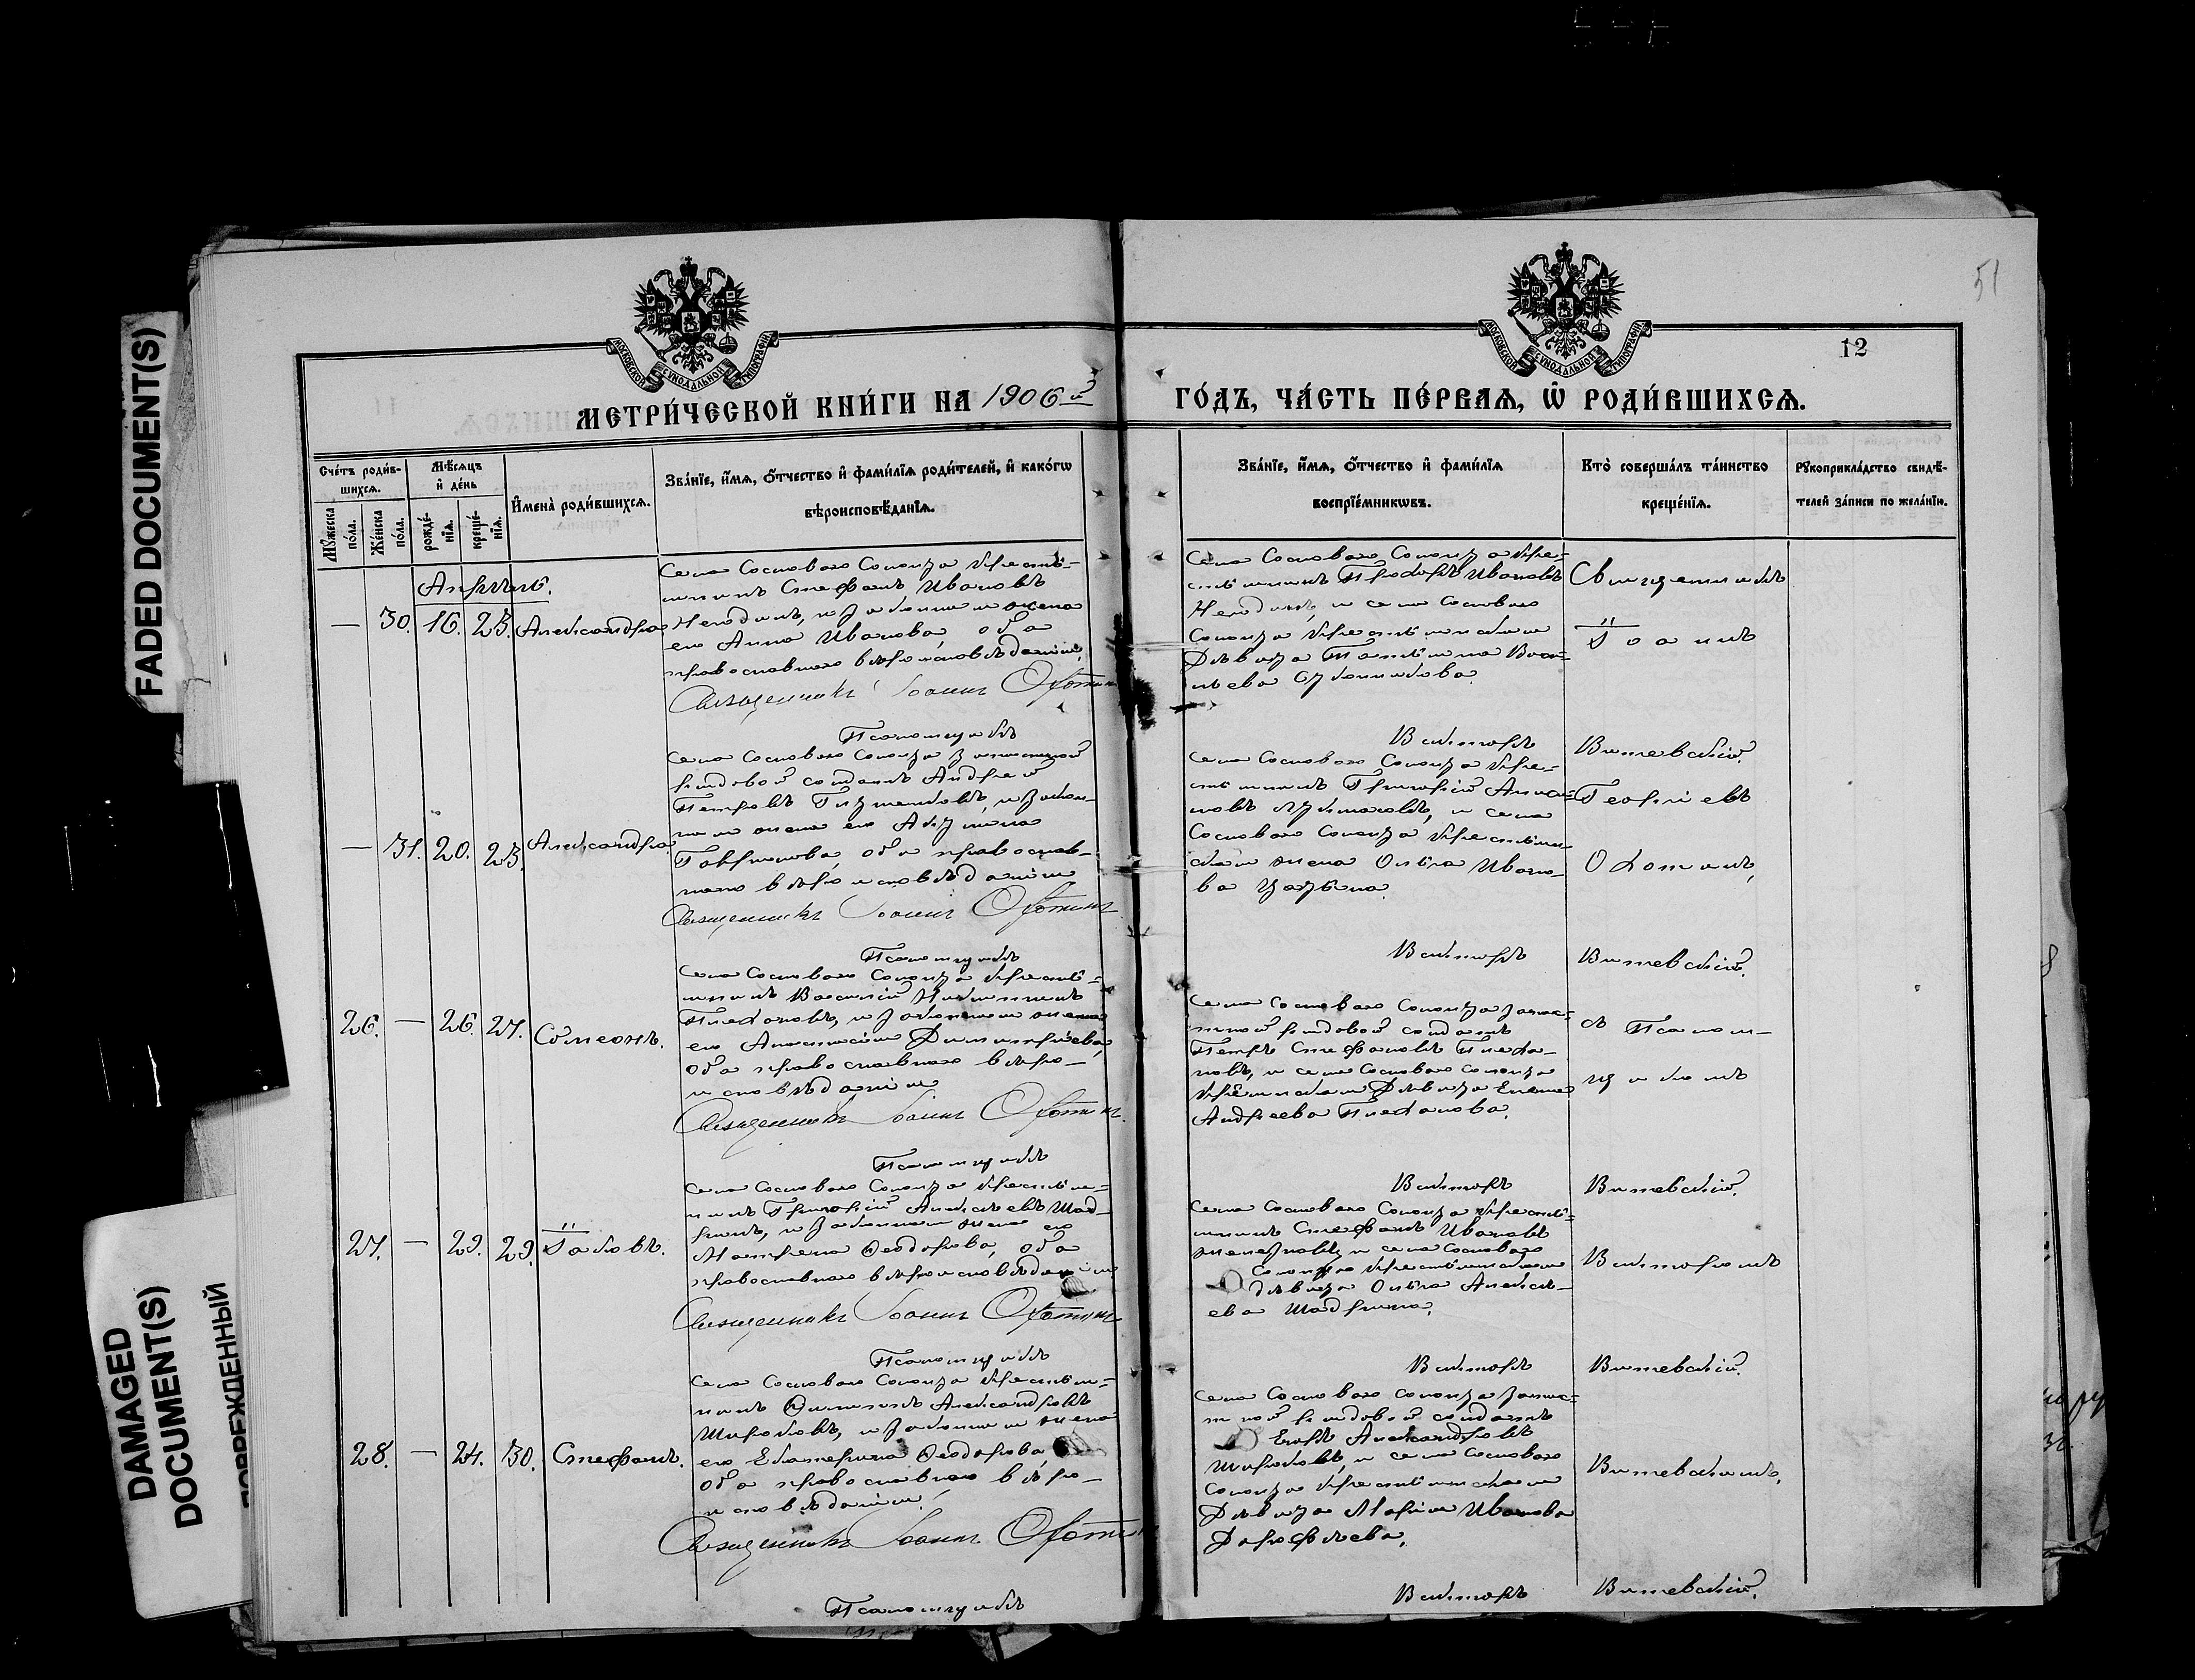 FADED DOCUMENT(S)
DAMAGED
DOCUMENT(S)
ПОВРЕЖДЕННЫЙ
51
12
МОСКОВСКОЙ СѴНОДАЛЬНОЙ ТИПОГРАФІИ
МОСКОВСКОЙ СѴНОДАЛЬНОЙ ТИПОГРАФІИ
МЕТРИ́ЧЕСКОЙ КНИ́ГИ НА 1906й
ГО́ДЪ, ЧА́СТЬ ПЕ́РВАѦ, Ѡ҆ РОДИ́ВШИХСѦ.
Сче́тъ роди́в-
шихсѧ.
Мꙋ́жеска по́ла.
Же́нска по́ла.
Мѣ́сѧцъ
и҆ де́нь
рожде́-
нїѧ.
креще́-
нїѧ.
И҆мена̀ роди́вшихсѧ.
Зва́нїе, и҆́мѧ, ѻ҆́тчество и҆ фами́лїѧ роди́телей, и҆ како́гѡ
вѣроисповѣ́данїѧ.
Зва́нїе, и҆́мѧ, ѻ҆́тчество и҆ фами́лїѧ
воспрїе́мникѡвъ.
Кто̀ соверша́лъ та́инство
креще́нїѧ.
Рꙋкоприкла́дство свидѣ́-
телей за́писи по жела́нїю.
Апрѣль.
— 30. 16. 23. Александра
Села Сосноваго Солонца кресть-
янинъ Стефанъ Ивановъ
и законная жена
его Анна Иванова, оба
православнаго вѣроисповѣданія.
Священникъ Іоаннъ Охотинъ
Села Сосноваго Солонца кре-
стьянинъ Ивановъ
и села Сосноваго
Солонца крестьянская
Дѣвица Татьяна Васи-
льева
Священникъ
Іоаннъ
Псаломщикъ
Викторъ
Витевскій.
— 31. 20. 23. Александра
Села Сосноваго Солонца запасной
рядовой солдатъ Андрей
Петровъ и закон-
ная жена его Акулина
Гаврилова, оба православ-
наго вѣроисповѣданія
Священникъ Іоаннъ Охотинъ
Села Сосноваго Солонца кре-
стьянинъ Григорій
и села
Сосноваго Солонца крестьян-
ская жена Ольга Ивано-
ва
Георгіевъ
Охотинъ,
Псаломщикъ
Викторъ
Витевскій.
26. — 26. 27. Сѷмеонъ.
Села Сосноваго Солонца кресть-
янинъ Василій
Плехановъ, и законная жена
его Анастасія Димитріева,
оба православнаго вѣро-
исповѣданія
Священникъ Іоаннъ Охотинъ
Села Сосноваго Солонца запас-
тной рядовой солдатъ
Петръ Стефановъ Плеха-
новъ, и села Сосноваго Солонца
крестьянская Дѣвица Елена
Андреева Плеханова.
съ Псалом-
щикомъ
Псаломщикъ
Викторъ
Витевскій.
27. — 29. 29. Іаковъ.
Села Сосноваго Солонца крестья-
нинъ Григорій Алексѣевъ Шад-
ринъ, и законная жена его
Матрена Ѳеодорова, оба
православнаго вѣроисповѣданія
Священникъ Іоаннъ Охотинъ
Села Сосноваго Солонца кресть-
янинъ Стефанъ Ивановъ
и села Сосноваго
Солонца крестьянская
дѣвица Ольга Алексѣ-
ева Шадрина.
Викторомъ
Псаломщикъ
Викторъ
Витевскій.
28. — 24. 30. Стефанъ.
Села Сосноваго Солонца крестья-
нинъ Филиппъ Александровъ
Широковъ, и законная жена
его Екатерина Ѳеодорова,
оба православнаго вѣро-
исповѣданія.
Священникъ Іоаннъ Охотинъ
Села Сосноваго Солонца запас-
тной рядовой солдатъ
Егоръ Александровъ
Широковъ, и села Сосноваго
Солонца крестьянская
Дѣвица Марія Иванова
Дорофѣева.
Витевскимъ.
Псаломщикъ
Викторъ
Витевскій.